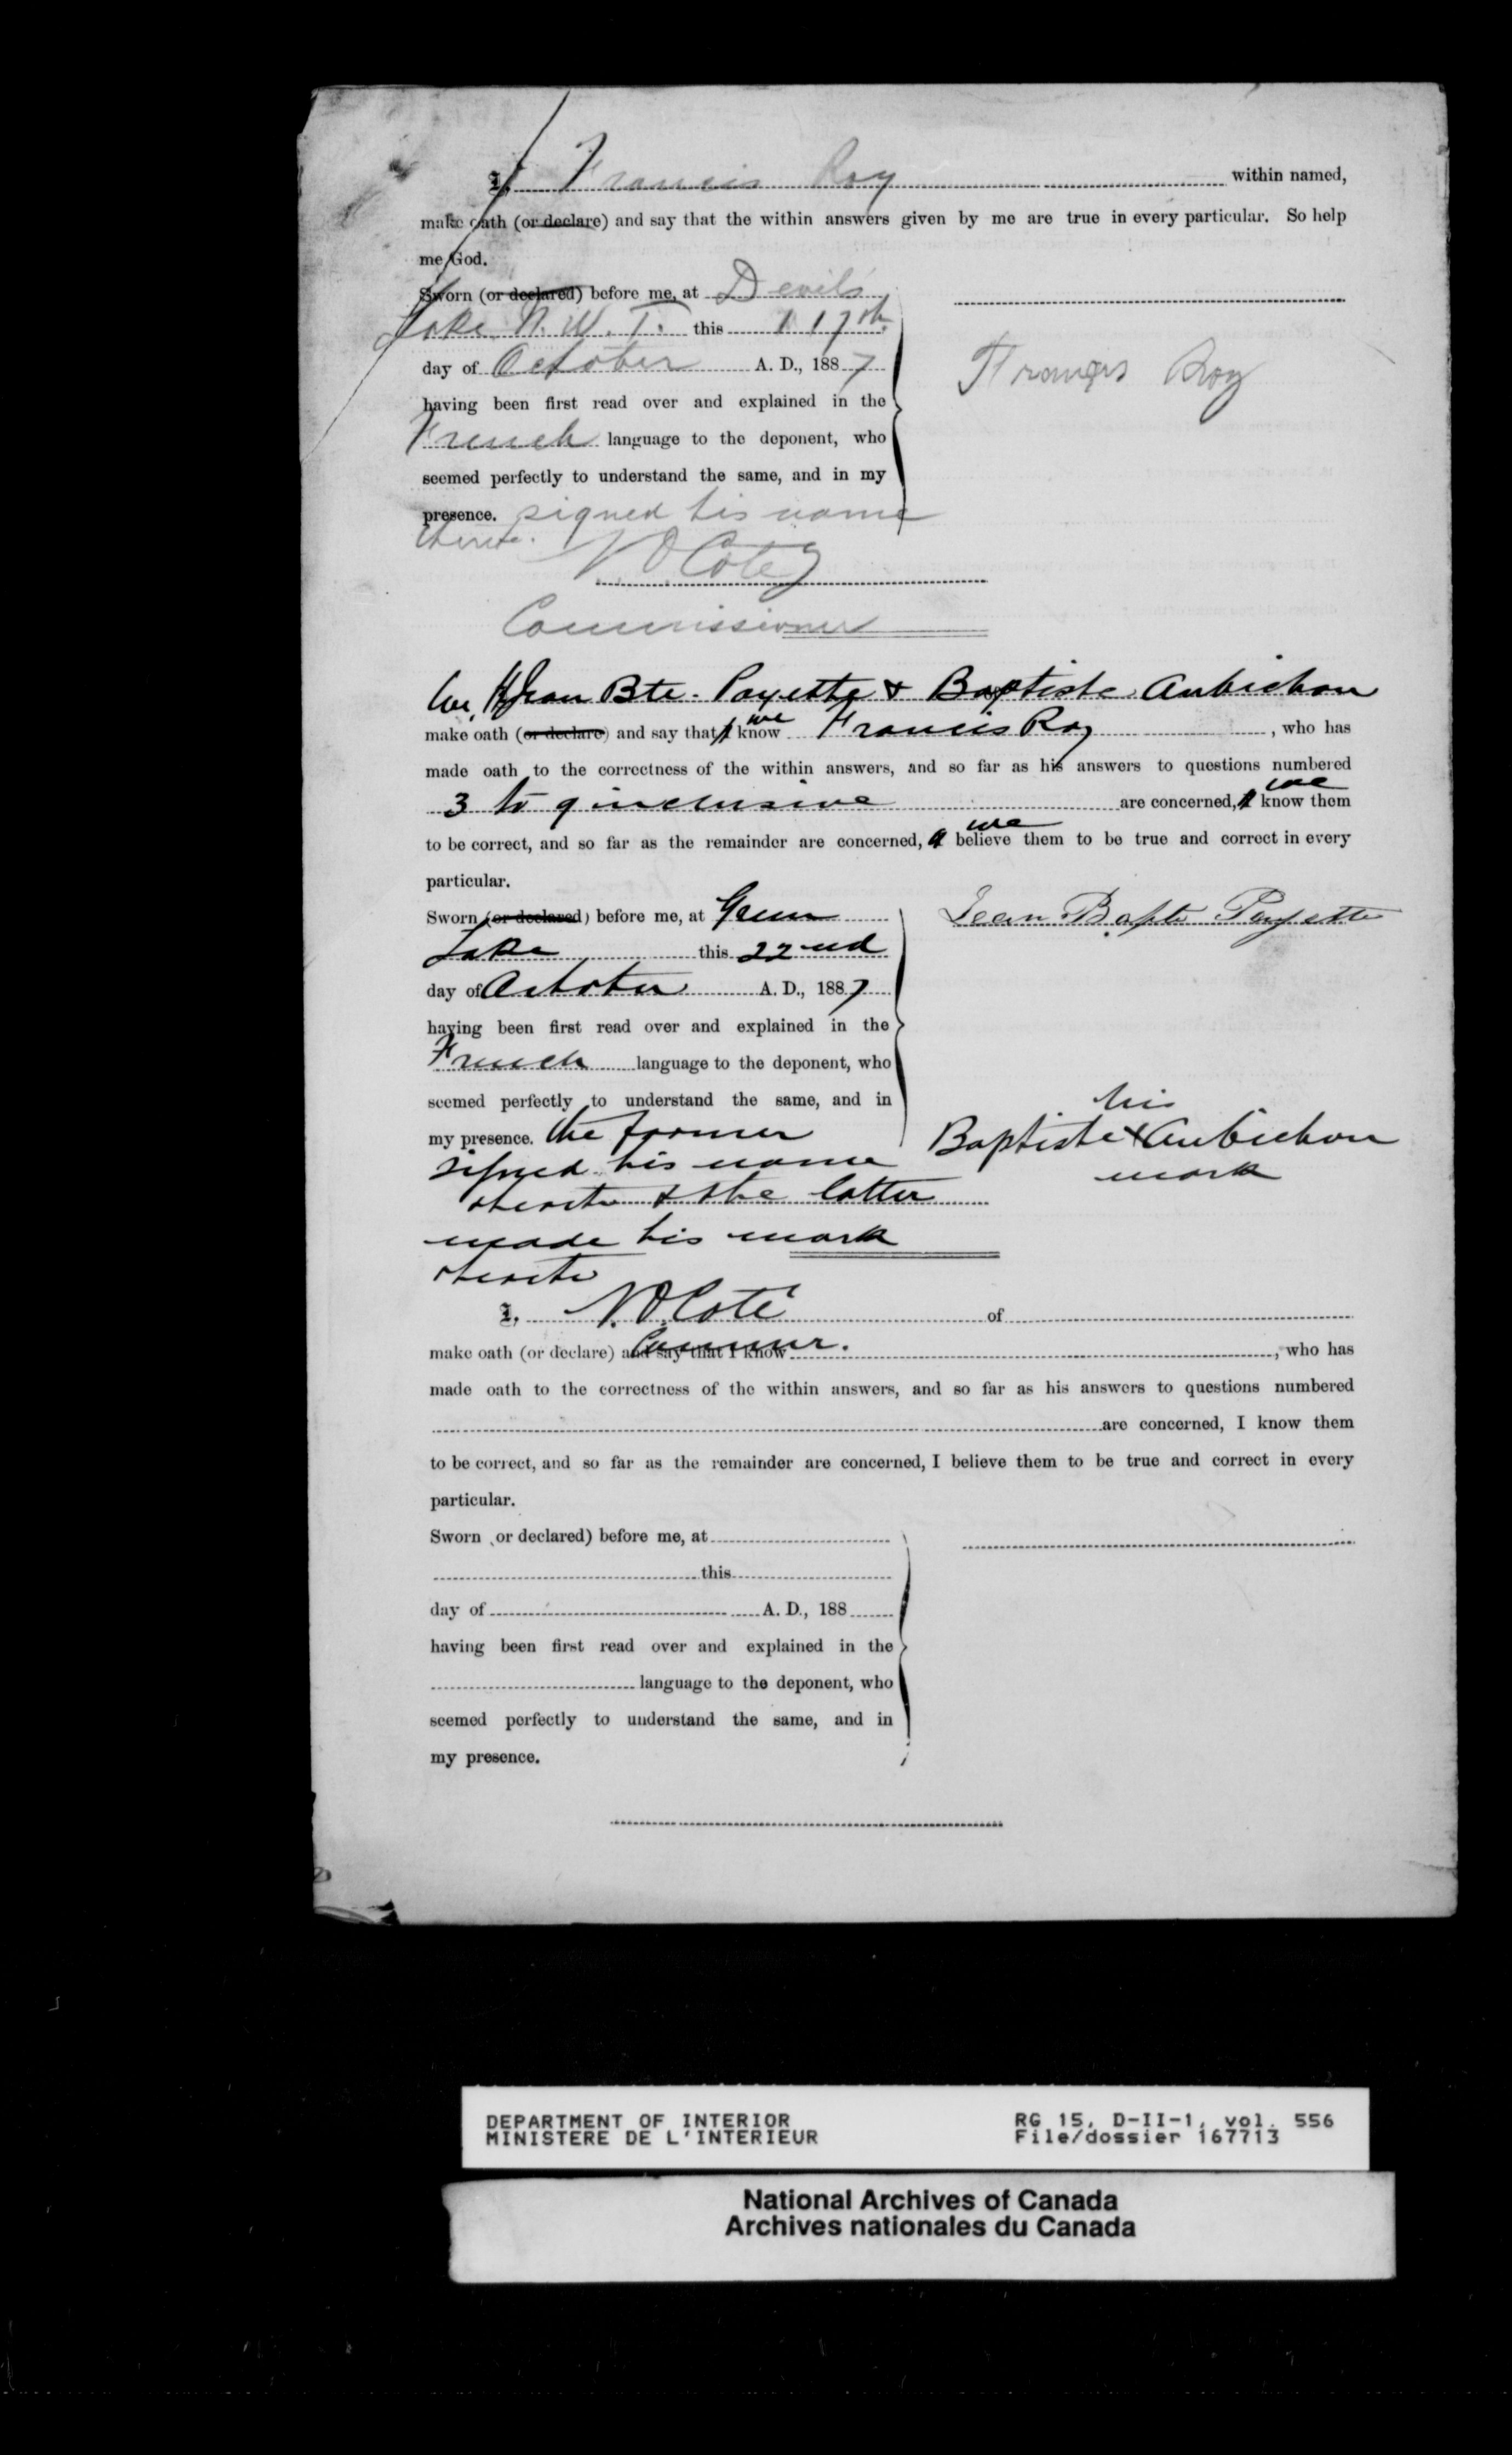 I, Francis Roy within named,
make oath (or declare) and say that the within answers given by me are true in every particular. So help
me God.
Sworn (or declared) before me, at Devil's
Lake N. W. T. this 17th
day of October A. D., 1887
having been first read over and explained in the
French language to the deponent, who
seemed perfectly to understand the same, and in my
presence. signed his name
thereto.
Francis Roy
N. O. Coté
Commissioner
We, Jean Bte. Payette & Baptiste Aubichon
make oath (or declare) and say that I we know Francis Roy, who has
made oath to the correctness of the within answers, and so far as his answers to questions numbered
3 to 9 inclusive are concerned, I we know them
to be correct, and so far as the remainder are concerned, we believe them to be true and correct in every
particular.
Sworn (or declared) before me, at Green
Lake this 22nd
day of October A. D., 1887
having been first read over and explained in the
French language to the deponent, who
seemed perfectly to understand the same, and in
my presence. the former
signed his name
thereto & the latter
made his mark
thereto
Jean Bapte Payette
his
Baptiste X Aubichon
mark
I, N. O. Coté of
make oath (or declare) and say that I know, who has
made oath to the correctness of the within answers, and so far as his answers to questions numbered
are concerned, I know them
to be correct, and so far as the remainder are concerned, I believe them to be true and correct in every
particular.
Sworn or declared) before me, at
this
day of A. D., 188
having been first read over and explained in the
language to the deponent, who
seemed perfectly to understand the same, and in
my presence.
DEPARTMENT OF INTERIOR
MINISTERE DE L'INTERIEUR
RG 15, D-II-1, vol. 556
File/dossier 167713
National Archives of Canada
Archives nationales du Canada